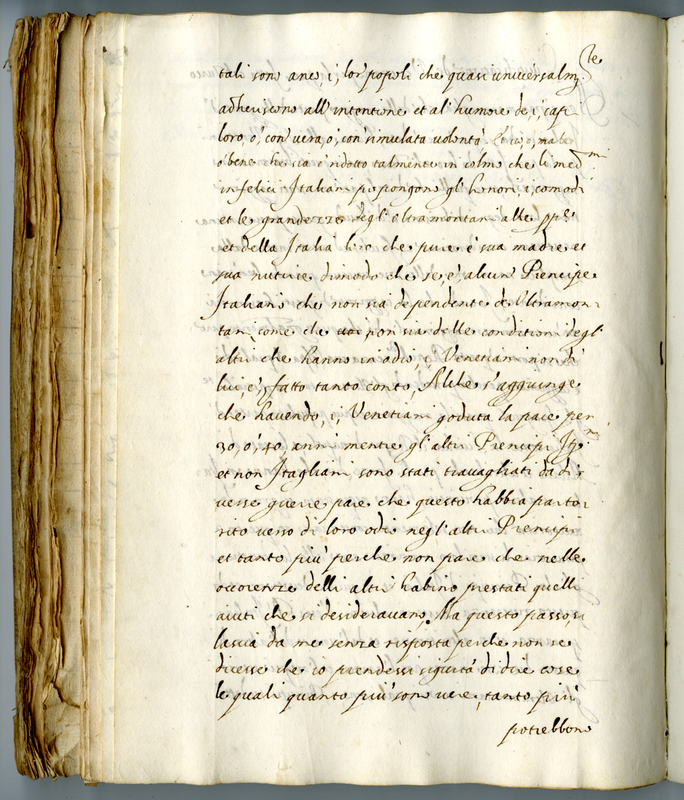 te
tali sono anco i, lor popoli che quasi universalm.
adheriscono all'intentione et al'humore de, i, capi
loro, ó, con vera, ó, con simulata volontá. Et ciò, o, male
o bene che sia é ridotto talmente in colmo che li med.mi
infelici Italiani pospongono gl'honori, i, comodi
et le grandezze degl'oltramontani alle pp.e
et della Italia che pure é sua madre et
sua nutrice dimodo che se, é, alcun Prencipe
Italiano che non sia dependente de Oltramon-
tani, come che non sia delle conditioni degl'
altri che hanno in odio, i, Venetiani non di
lui, é, fatto tanto conto, Alche s'aggiunge
che havendo, i, Venetiani goduta la pace per
30, ó, 40, anni mentre gl'altri Prencipi
et non Itagliani, sono stati travagliati da di-
verse guerre pare che questo habbia parto-
rito verso di loro odio negl'altri Prencipi
et tanto piu' perche non pare che nelle
occorenze delli altri habino prestati quelli
aiuti che si desideravano. Ma questo passo, si
lascia da me senza risposta perche non se
dicesse che io prendessi sigurtá di dire cose
le quali quanto piu' sono vere, tanto piu'
potrebbono